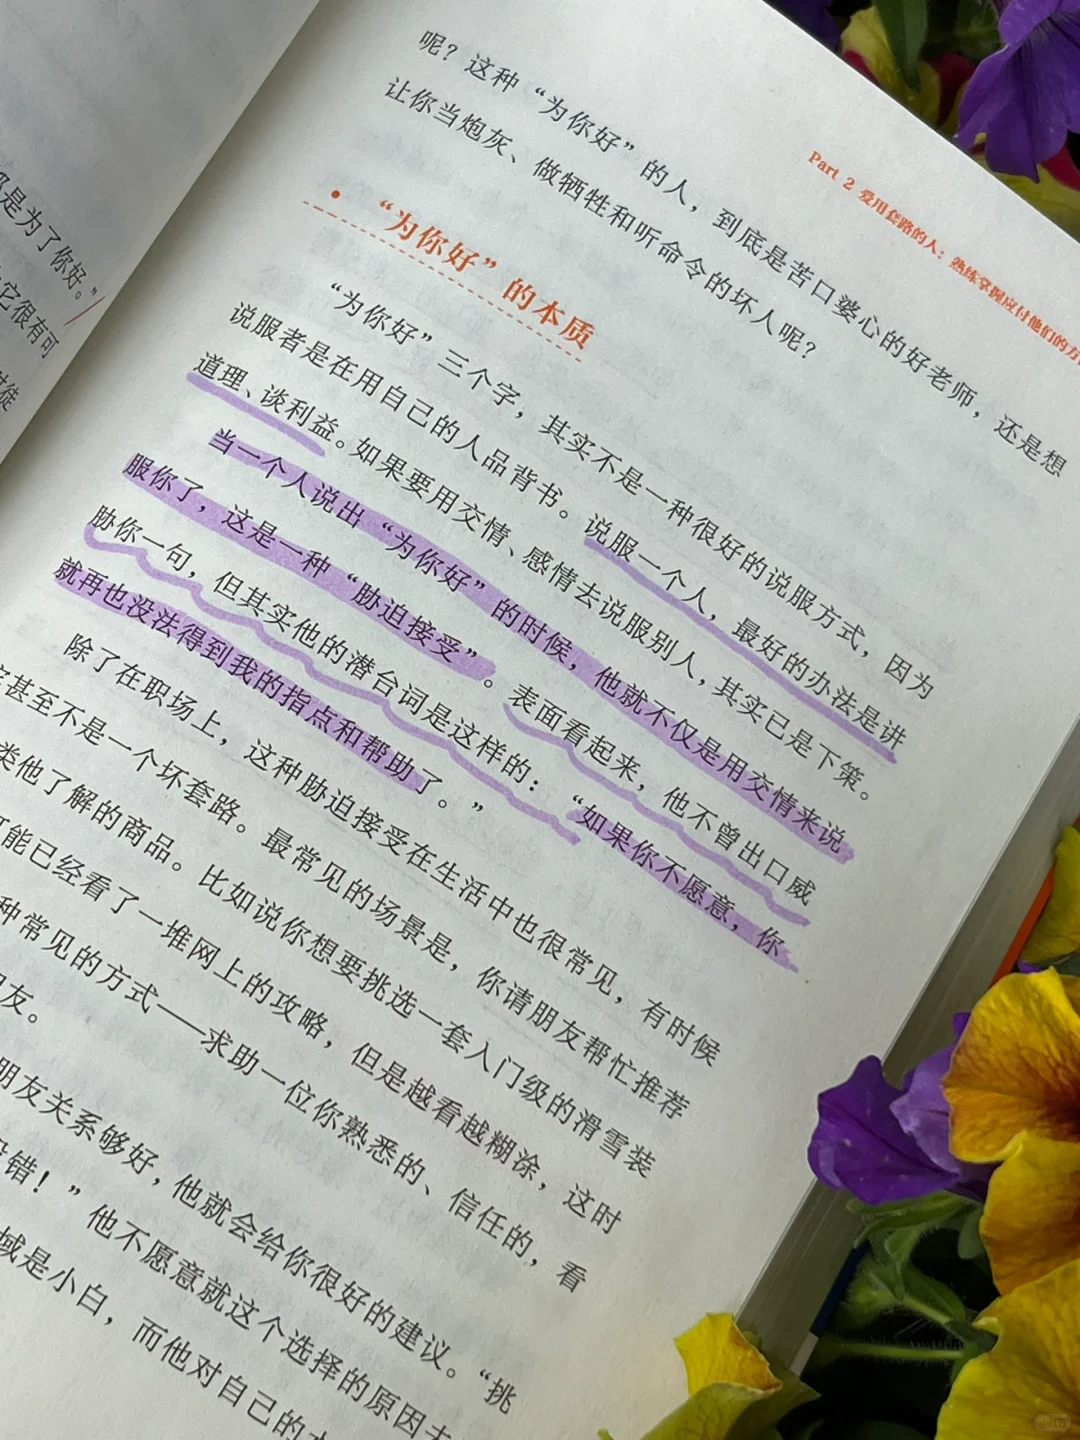 是为了你好。”
它很有可
徒
Part 2 爱用套路的人：熟练掌握应付他们的方
呢？这种“为你好”的人，到底是苦口婆心的好老师，还是想
让你当炮灰、做牺牲和听命令的坏人呢？
• “为你好”的本质
“为你好”三个字，其实不是一种很好的说服方式，因为
说服者是在用自己的人品背书。说服一个人，最好的办法是讲
道理、谈利益。如果要用交情、感情去说服别人，其实已是下策。
当一个人说出“为你好”的时候，他就不仅是用交情来说
服你了，这是一种“胁迫接受”。表面看起来，他不曾出口威
胁你一句，但其实他的潜台词是这样的：“如果你不愿意，你
就再也没法得到我的指点和帮助了。”
除了在职场上，这种胁迫接受在生活中也很常见，有时候
甚至不是一个坏套路。最常见的场景是，你请朋友帮忙推荐
类他了解的商品。比如说你想要挑选一套入门级的滑雪装
可能已经看了一堆网上的攻略，但是越看越糊涂，这时
种常见的方式——求助一位你熟悉的、信任的，看
朋友。
朋友关系够好，他就会给你很好的建议。“挑
没错！”他不愿意就这个选择的原因去
域是小白，而他对自己的